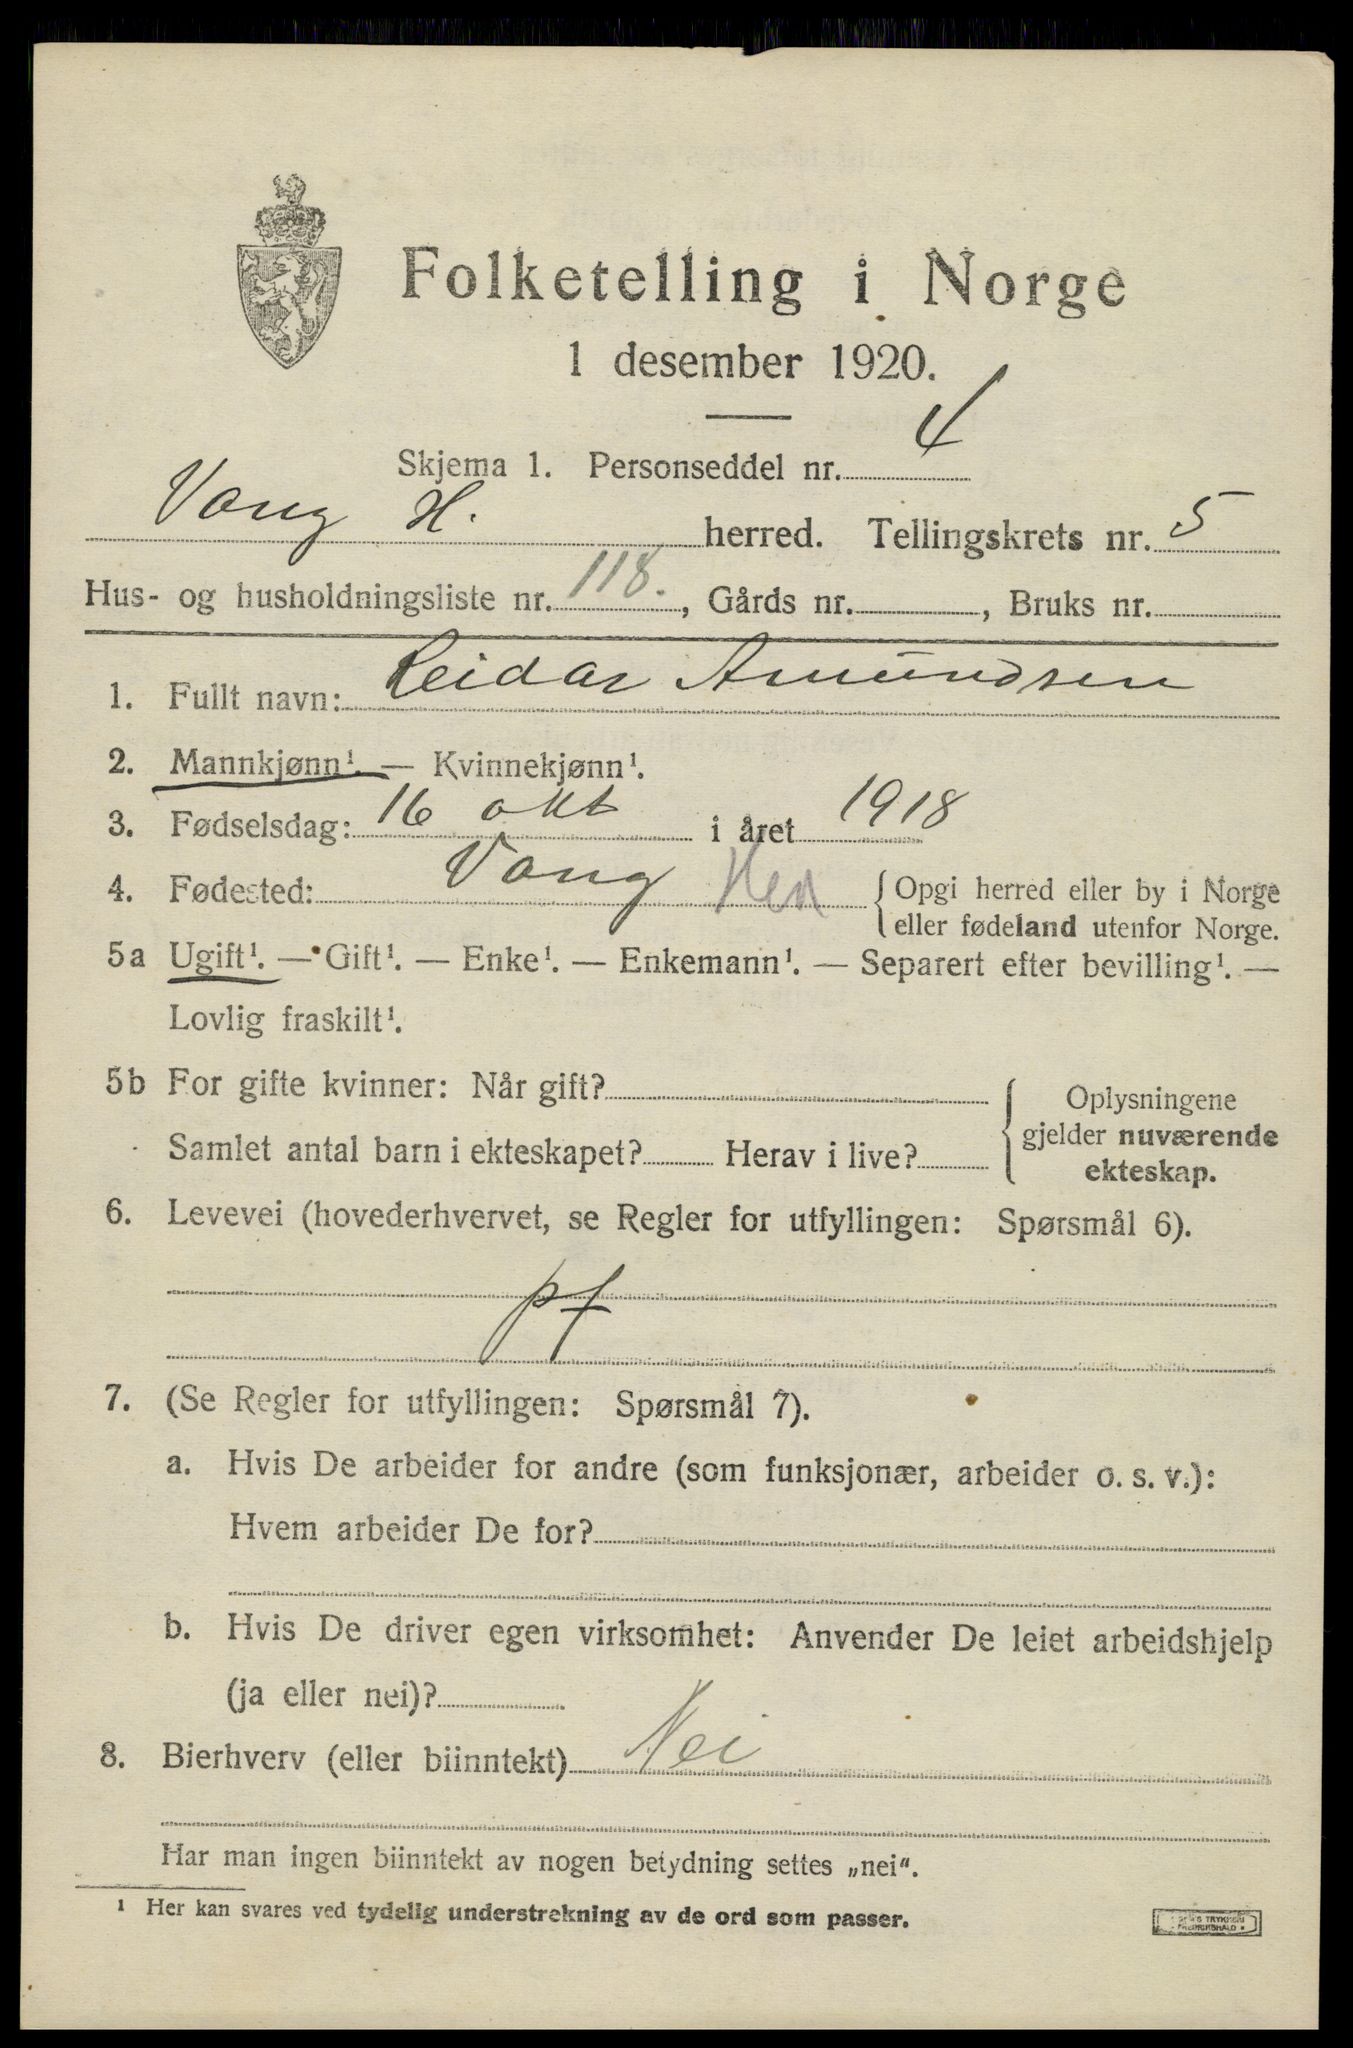 Folketelling i Norge
1 desember 1920.
Skjema 1. Personseddel nr. 4
Vang H. herred. Tellingskrets nr. 5
Hus- og husholdningsliste nr. 118. , Gårds nr. , Bruks nr.
1. Fullt navn: Reidar Amundsen
2. Mannkjønn¹. — Kvinnekjønn¹.
3. Fødselsdag: 16 okt i året 1918
4. Fødested: Vang Hed { Opgi herred eller by i Norge
eller fødeland utenfor Norge.
5a Ugift¹. — Gift¹. — Enke¹. — Enkemann¹. — Separert efter bevilling¹. —
Lovlig fraskilt¹.
5b For gifte kvinner: Når gift? { Oplysningene
Samlet antal barn i ekteskapet? Herav i live? gjelder nuværende
ekteskap.
6. Levevei (hovederhvervet, se Regler for utfyllingen: Spørsmål 6).
pf
7. (Se Regler for utfyllingen: Spørsmål 7).
a. Hvis De arbeider for andre (som funksjonær, arbeider o. s. v.):
Hvem arbeider De for?
b. Hvis De driver egen virksomhet: Anvender De leiet arbeidshjelp
(ja eller nei)?
8. Bierhverv (eller biinntekt) Nei
Har man ingen biinntekt av nogen betydning settes „nei“.
¹ Her kan svares ved tydelig understrekning av de ord som passer.
TRYKKERI
FREDRIKSHALD